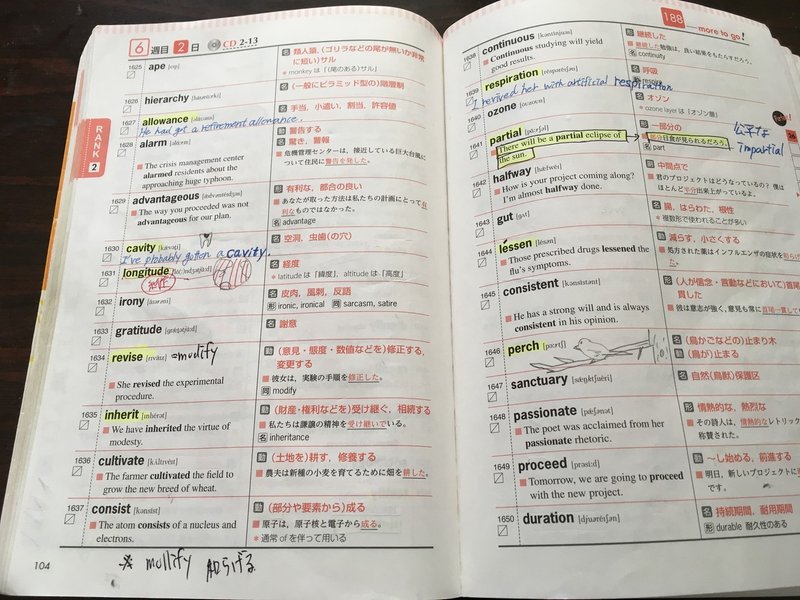 6 週目 2 日 CD 2-13
RANK 2
1625 ape
名 類人猿,(ゴリラなどの尾が無いか非常に短い)サル
* monkey は「(尾のある)サル」
1626 hierarchy
名 (一般にピラミッド型の)階層制
1627 allowance
名 手当, 小遣い, 割当, 許容値
He had got a retirement allowance.
1628 alarm
動 警告する
名 驚き, 警報
The crisis management center
alarmed residents about the
approaching huge typhoon.
危機管理センターは, 接近している巨大台風に
ついて住民に警告を発した。
1629 advantageous
形 有利な, 都合の良い
The way you proceeded was not
advantageous for our plan.
あなたが取った方法は私たちの計画にとって有
利なものではなかった。
名 advantage
1630 cavity
名 空洞, 虫歯(の穴)
I've probably gotten a cavity.
1631 longitude
名 経度
* latitude は「緯度」, altitude は「高度」
1632 irony
名 皮肉, 風刺, 反語
形 ironic, ironical 同 sarcasm, satire
1633 gratitude
名 謝意
1634 revise
=modify
動 (意見・態度・数値などを)修正する,
変更する
She revised the experimental
procedure.
彼女は, 実験の手順を修正した。
同 modify
1635 inherit
動 (財産・権利などを)受け継ぐ, 相続する
We have inherited the virtue of
modesty.
私たちは謙譲の精神を受け継いでいる。
名 inheritance
1636 cultivate
動 (土地を)耕す, 修養する
The farmer cultivated the field to
grow the new breed of wheat.
農夫は新種の小麦を育てるために畑を耕した。
1637 consist
動 (部分や要素から)成る
The atom consists of a nucleus and
electrons.
原子は, 原子核と電子から成る。
* 通常 of を伴って用いる
104
※ mollify 和らげる
188 more to go!
1638 continuous
形 継続した
Continuous studying will yield
good results.
継続した勉強は, 良い結果をもたらすだろう。
名 continuity
1639 respiration
名 呼吸
I revived her with artificial respiration
1640 ozone
名 オゾン
* ozone layer は「オゾン層」
1641 partial
形 一部分の
There will be a partial eclipse of
the sun.
部分日食が見られるだろう。
名 part
公平な
impartial
1642 halfway
副 中間点で
How is your project coming along?
I'm almost halfway done.
君のプロジェクトはどうなっているの? 僕は
ほとんど半分出来上がっているよ。
1643 gut
名 腸, はらわた, 根性
* 複数形で使われることが多い
1644 lessen
動 減らす, 小さくする
Those prescribed drugs lessened the
flu's symptoms.
処方された薬はインフルエンザの症状を和らげ
た。
1645 consistent
形 (人が信念・言動などにおいて)首尾
貫した
He has a strong will and is always
consistent in his opinion.
彼は意志が強く, 意見も常に首尾一貫して
1646 perch
名 (鳥かごなどの)止まり木
動 (鳥が)止まる
1647 sanctuary
名 自然(鳥獣)保護区
1648 passionate
形 情熱的な, 熱烈な
The poet was acclaimed from her
passionate rhetoric.
その詩人は, 情熱的なレトリック
称賛された。
1649 proceed
動 〜し始める, 前進する
Tomorrow, we are going to proceed
with the new project.
明日, 新しいプロジェクトに
です。
1650 duration
名 持続期間, 耐用期間
形 durable 耐久性のある